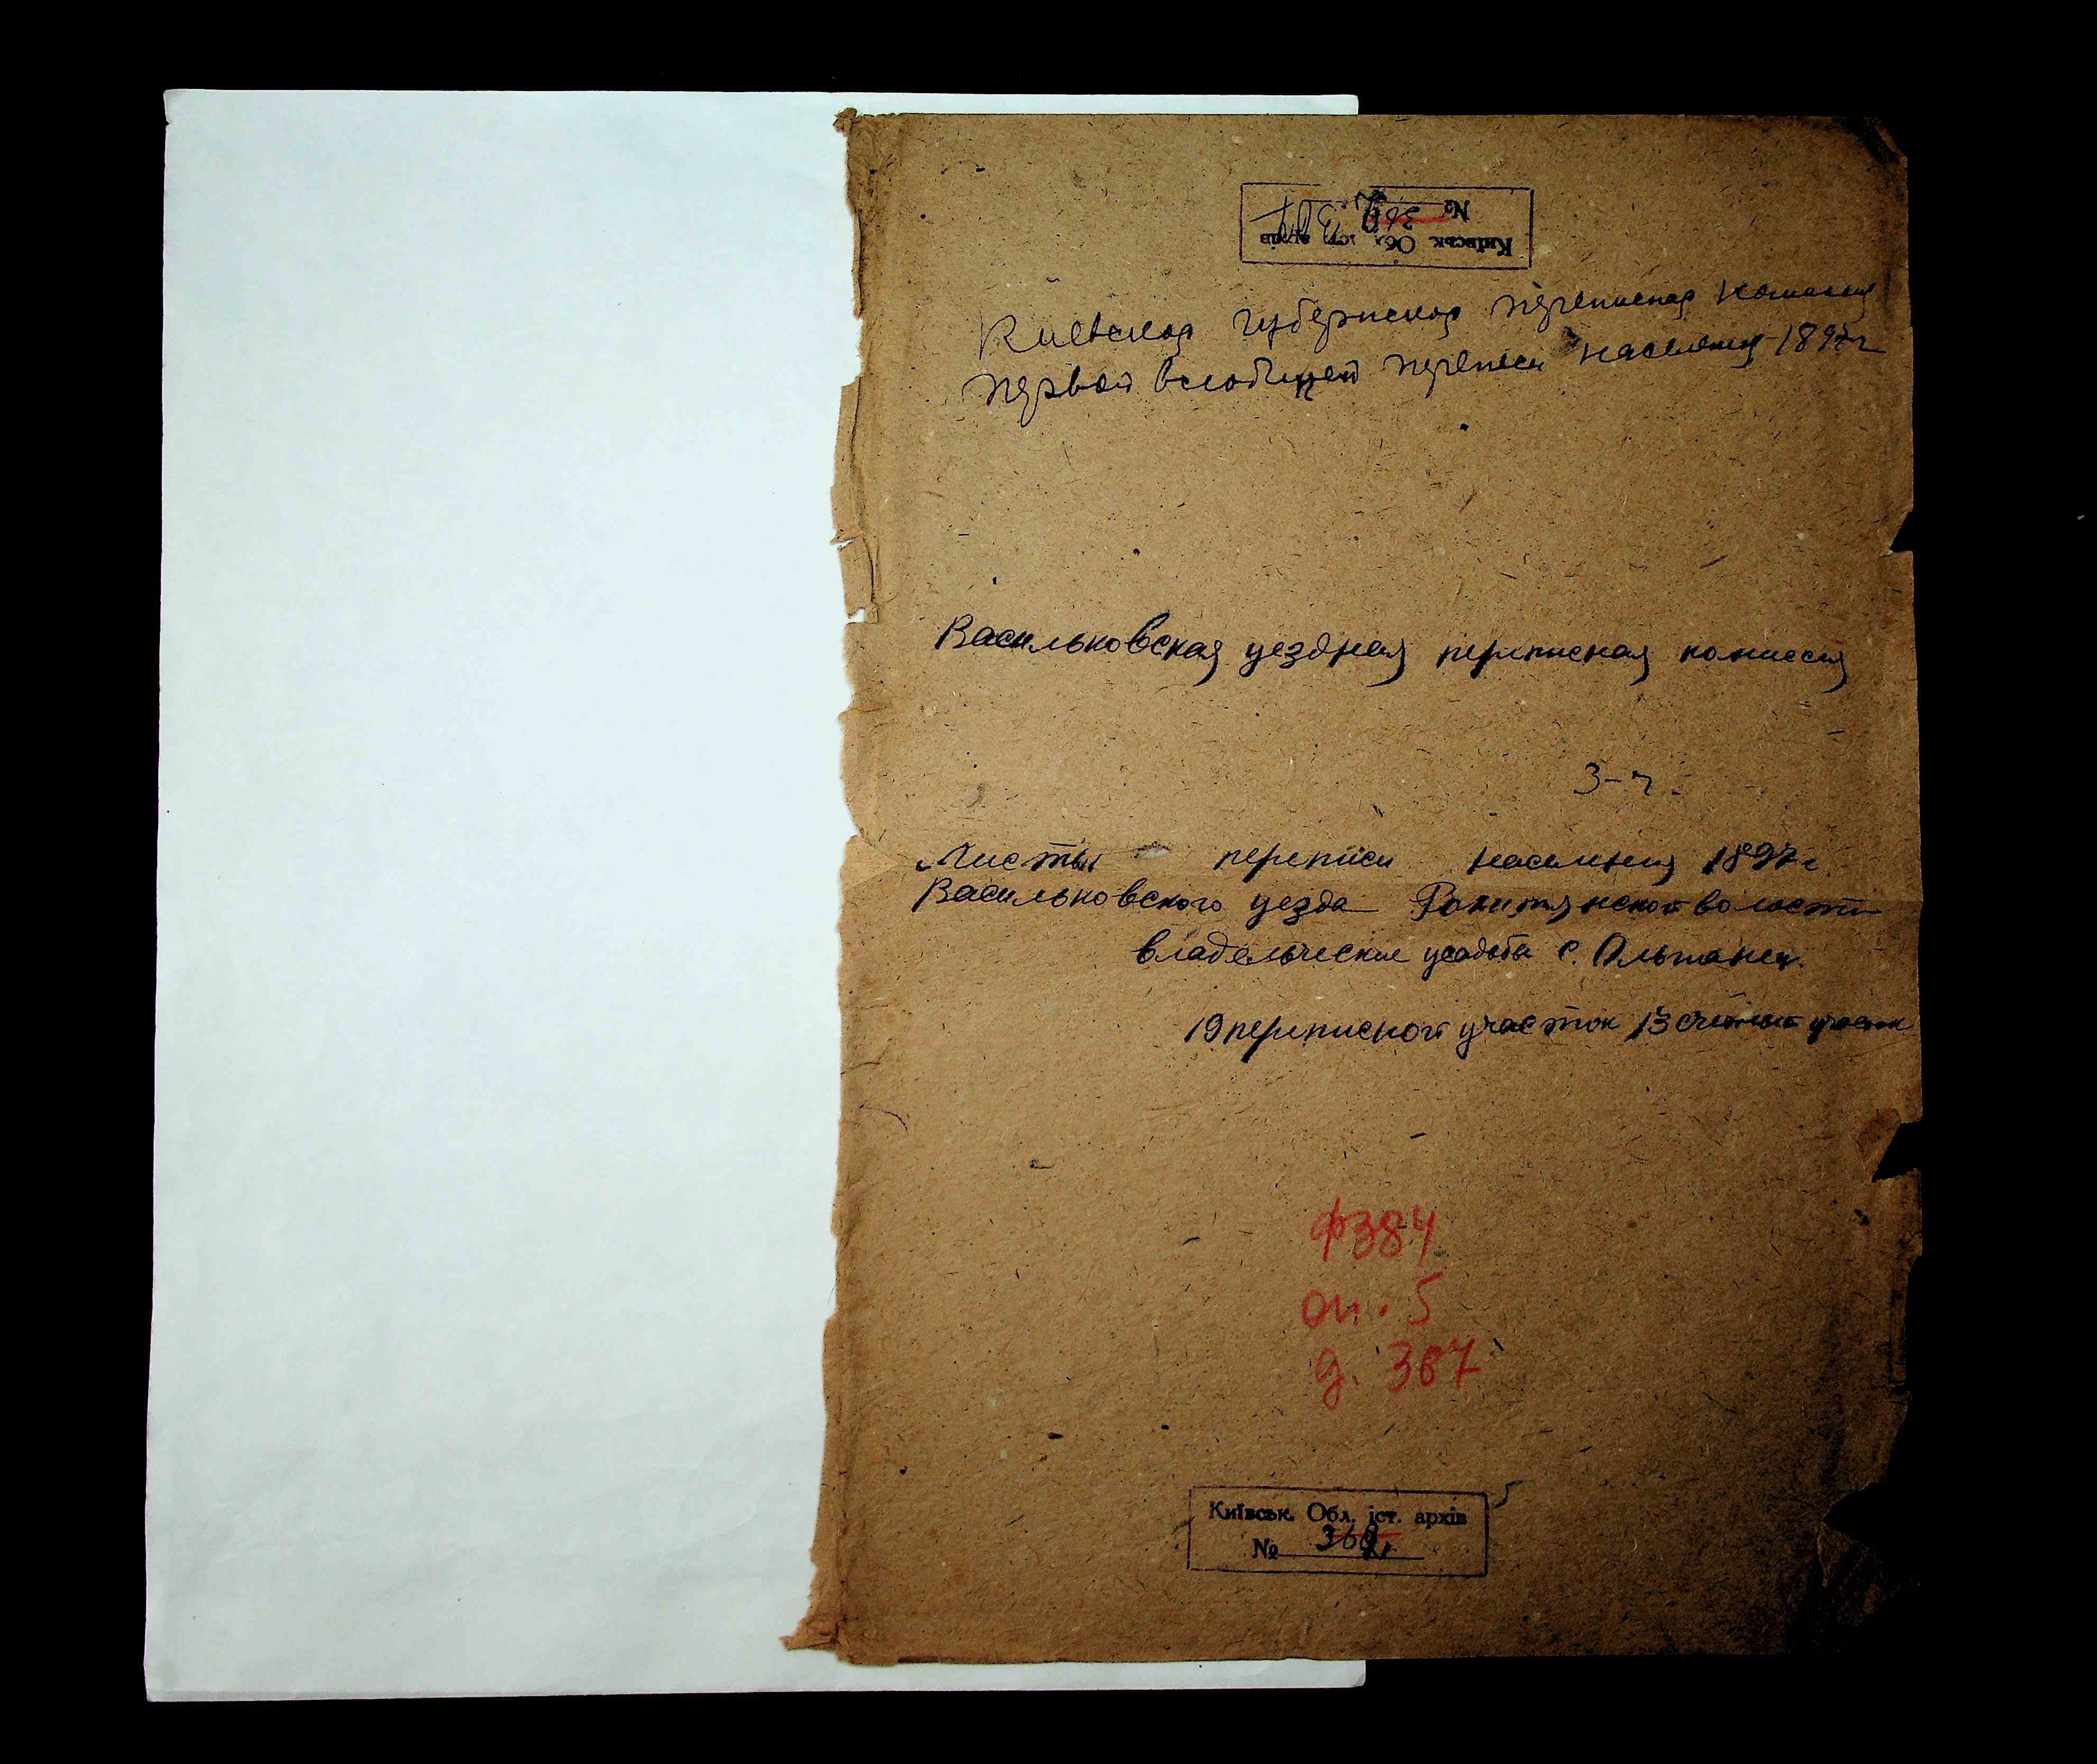 Київськ. Обл. іст. архів
№
Киевская губернская переписная комиссия
первой всеобщей переписи населения 1897 г
Васильковская уездная переписная комиссия
3-ч.
Листы переписи населения 1897 г.
Васильковского уезда Рокитянской волости
владельческие усадьбы с. Ольшаница.
19 переписной участок 13 счетный участок
ф384
оп. 5
д. 387
Київськ. Обл. іст. архів
№